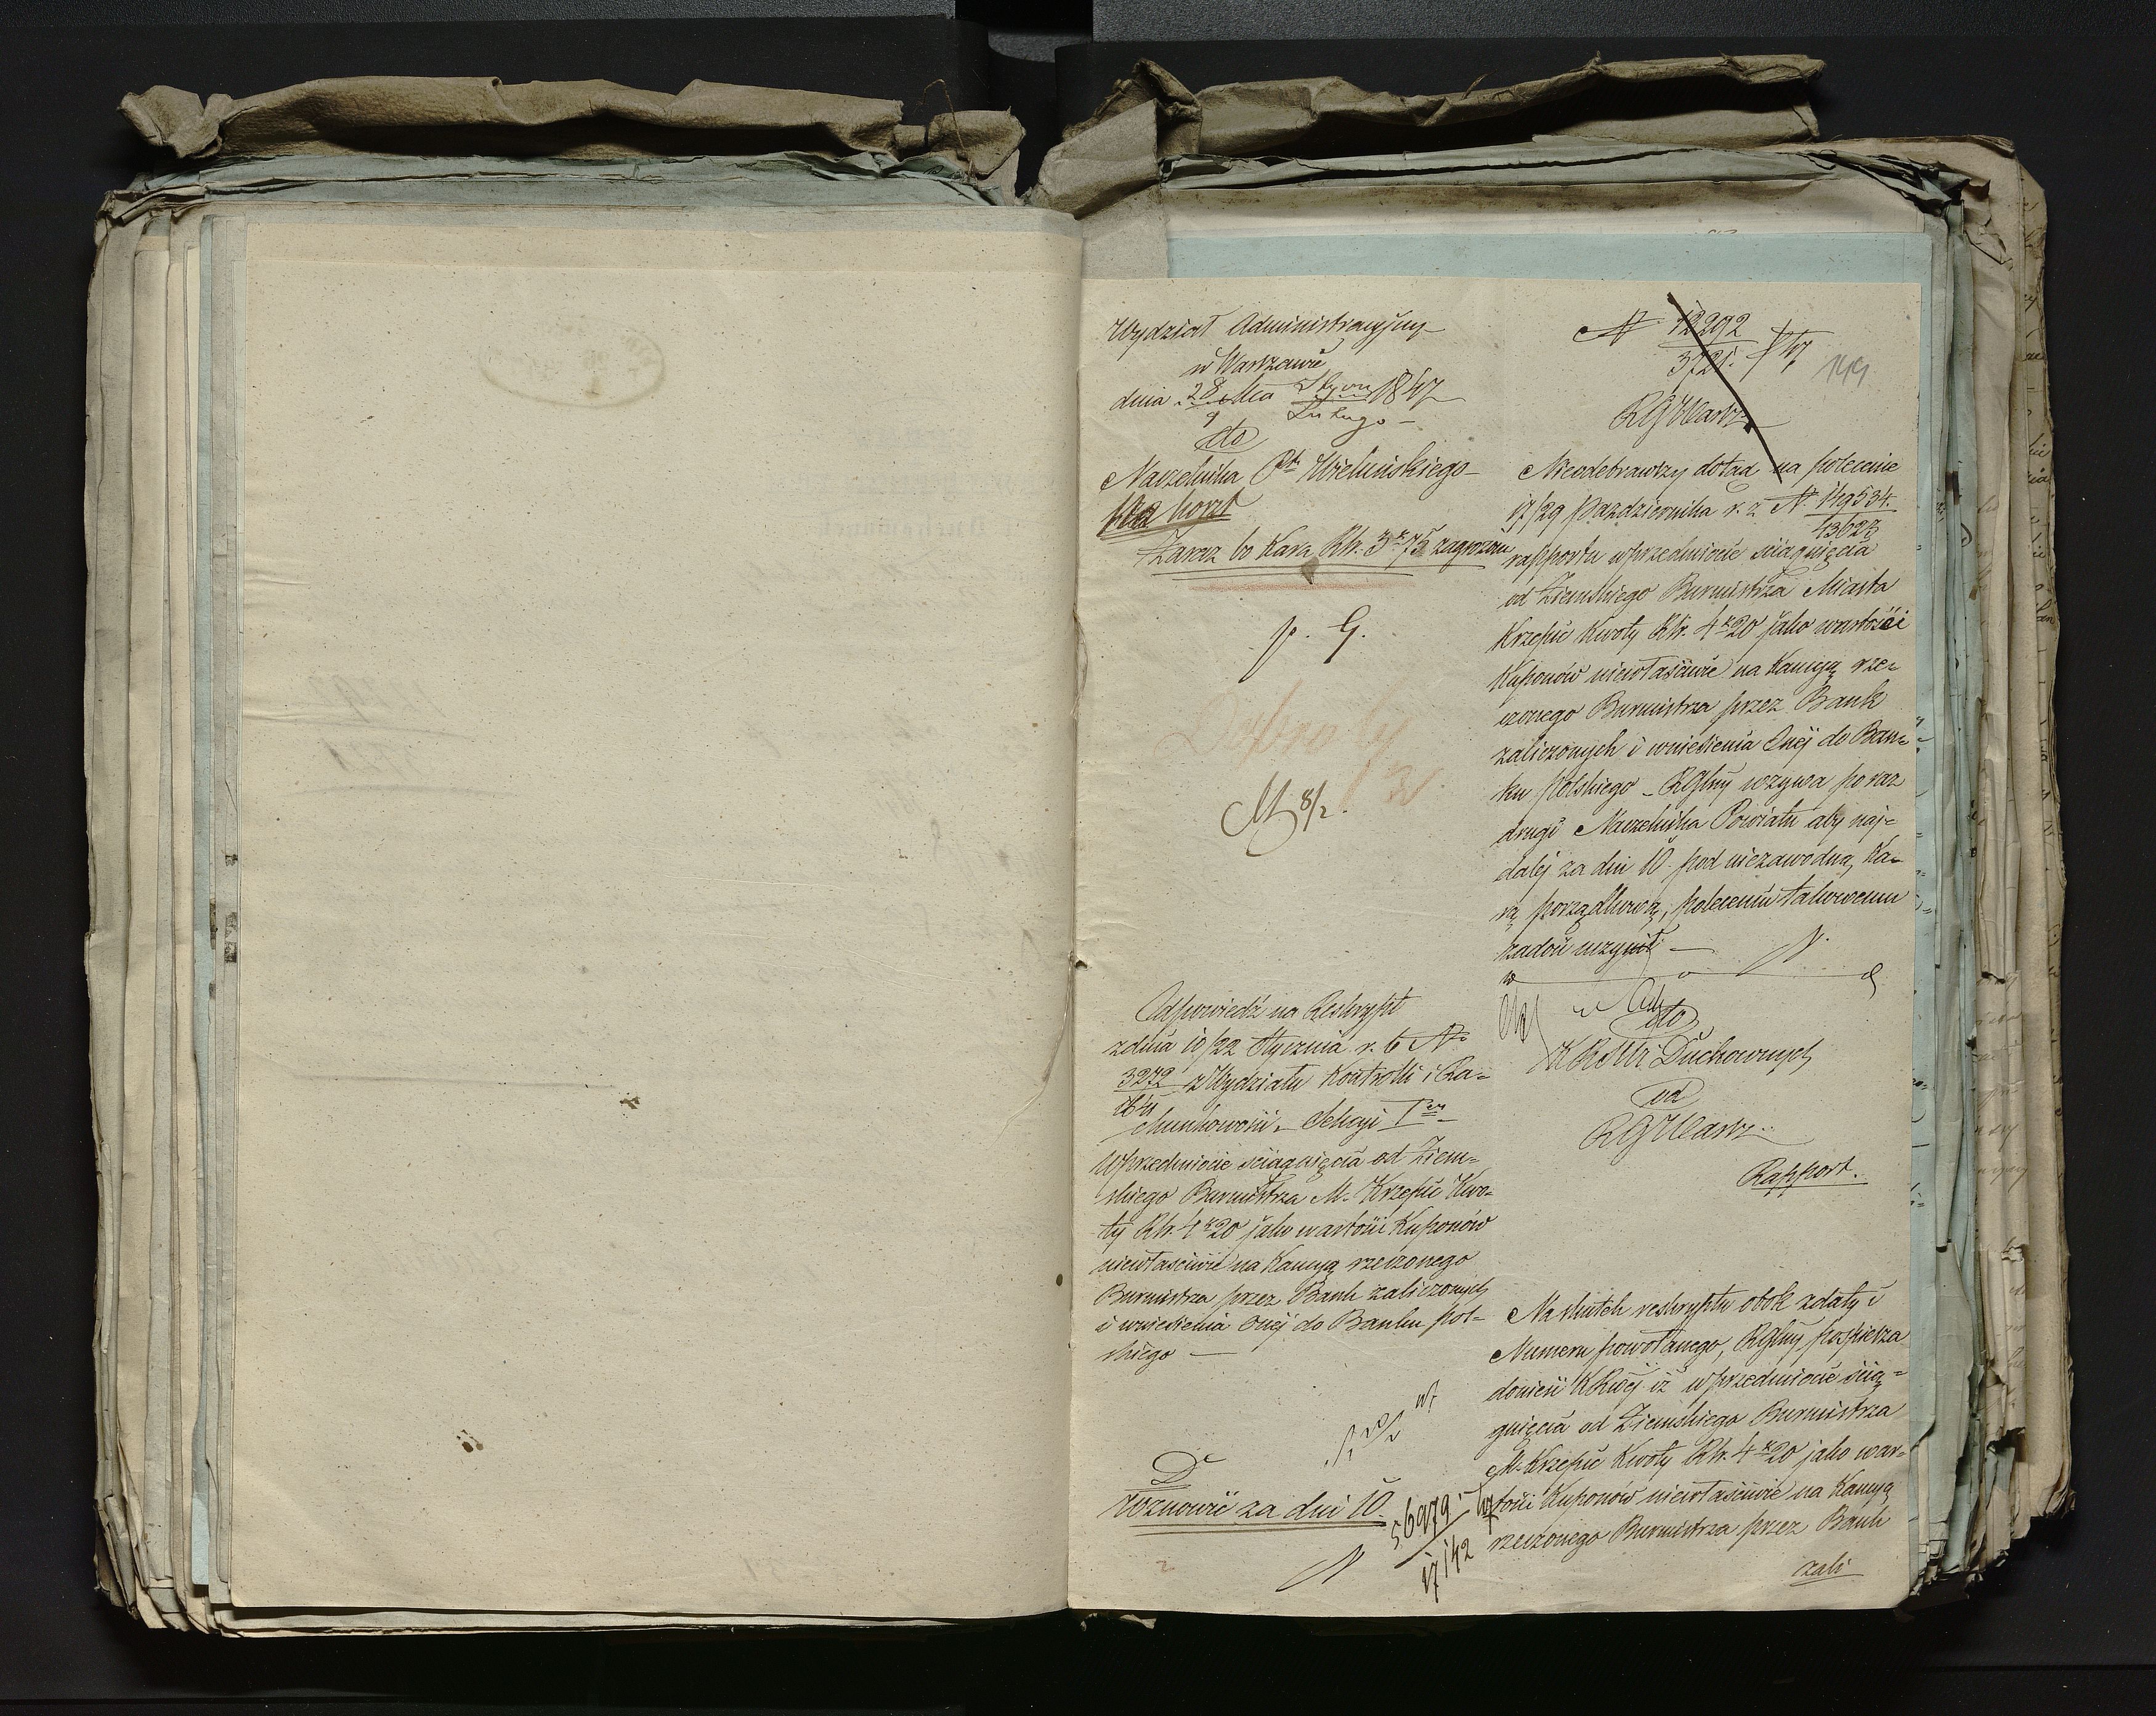 Wydział Administracyjny
w Warszawie
dnia 28/9 Mca Stycz/Lutego 1847
do
Naczelnika Ptu Wieluńskiego
Zaraz to Kara Rbr. 3 k 75 zagrożon
p. G.
8/2.
Odpowiedź na Reskrypt
z dnia 10/22 Stycznia r. b. No
3272 z Wydziału Kontrolli i Ra-
chunkowości. Sekcyi I
w przedmiocie ściągnięcia od Ziem-
skiego Burmistrza M. Krzepic Kwo-
ty Rbr. 4 k 20 jako wartości Kuponów
niewłaściwie na Kaucyą rzeczonego
Burmistrza przez Bank zaliczonych
i wniesienia onej do Banku Pol-
skiego —
D
Wznowić za dni 10.
56979
17142
N 12292
3721.
149
RGWarsz
Nieodebrawszy dotąd na polecenie
17/29 Października r. z. N 149534.
43627
rapportu w przedmiocie ściągnięcia
od Ziemskiego Burmistrza Miasta
Krzepic Kwoty Rbr. 4 k 20 jako wartości
Kuponów niewłaściwie na Kaucyą rze-
czonego Burmistrza przez Bank
zaliczonych i wniesienia Onej do Ban-
ku Polskiego – RGlny wzywa po raz
drugi Naczelnika Powiatu aby naj-
dalej za dni 10. pod niezawodną Ka-
rą porządkową, poleceniu takowemu
zadość uczynił —
do
KRSWi Duchownych
od
RGWarsz
Rapport.
Na skutek reskryptu obok z daty i
Numeru powołanego, RGlny pospiesza
donieść KRwej iż w przedmiocie ścią-
gnięcia od Ziemskiego Burmistrza
M. Krzepic Kwoty Rbr. 4 k 20 jako war-
tości Kuponów niewłaściwie na Kaucyą
rzeczonego Burmistrza przez Bank
zali